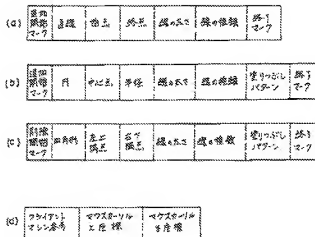 (a) 追加開始マーク 直線 始点 終点 線の太さ 線の種類 終了マーク
(b) 追加開始マーク 円 中心点 半径 線の太さ 線の種類 塗りつぶしパターン 終了マーク
(c) 削除開始マーク 四角形 左上隅点 右下隅点 線の太さ 線の種類 塗りつぶしパターン 終了マーク
(d) クライアントマシン番号 マウスカーソルx座標 マウスカーソルy座標